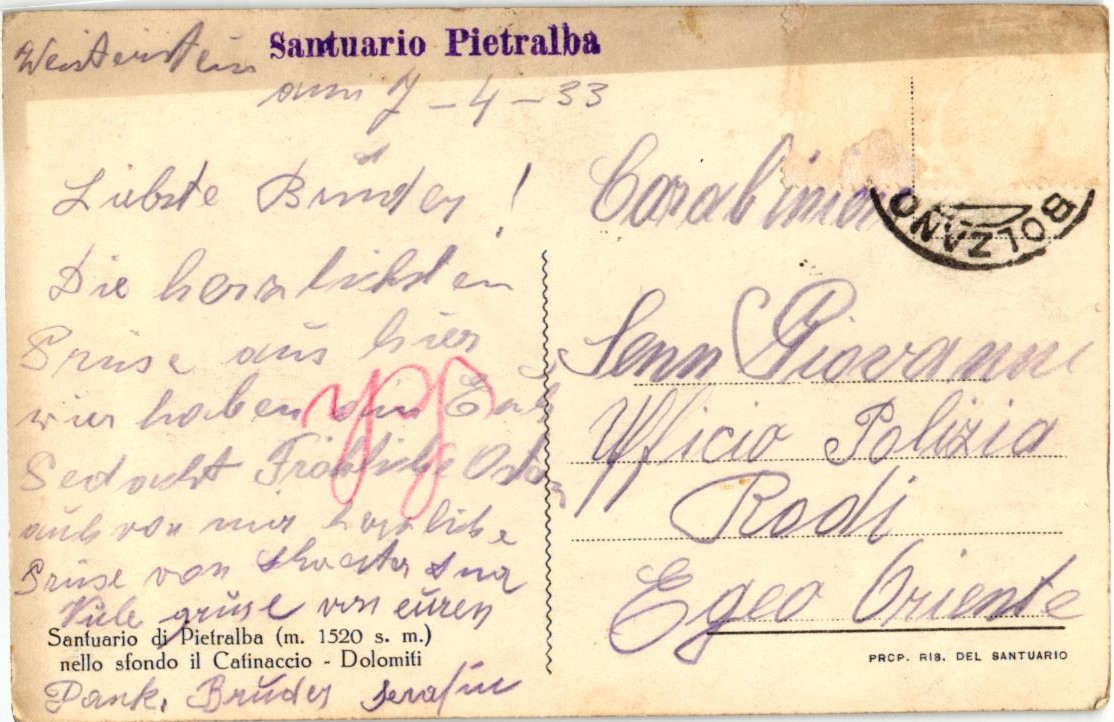 Weisenstein Santuario Pietralba
am 7-4-33
Liebste Brüder!
Die herzlichsten
Grüse aus hier
wir haben an Euch
Gedacht Fröhliche Ostern
auch von mir herzliche
Grüse von
Viele grüse von euren
Santuario di Pietralba (m. 1520 s. m.)
nello sfondo il Catinaccio - Dolomiti
Dank. Brüder Serafin
BOLZANO
Senn Giovanni
Ufficio Polizia
Rodi
Egeo Oriente
PROP. RIS. DEL SANTUARIO